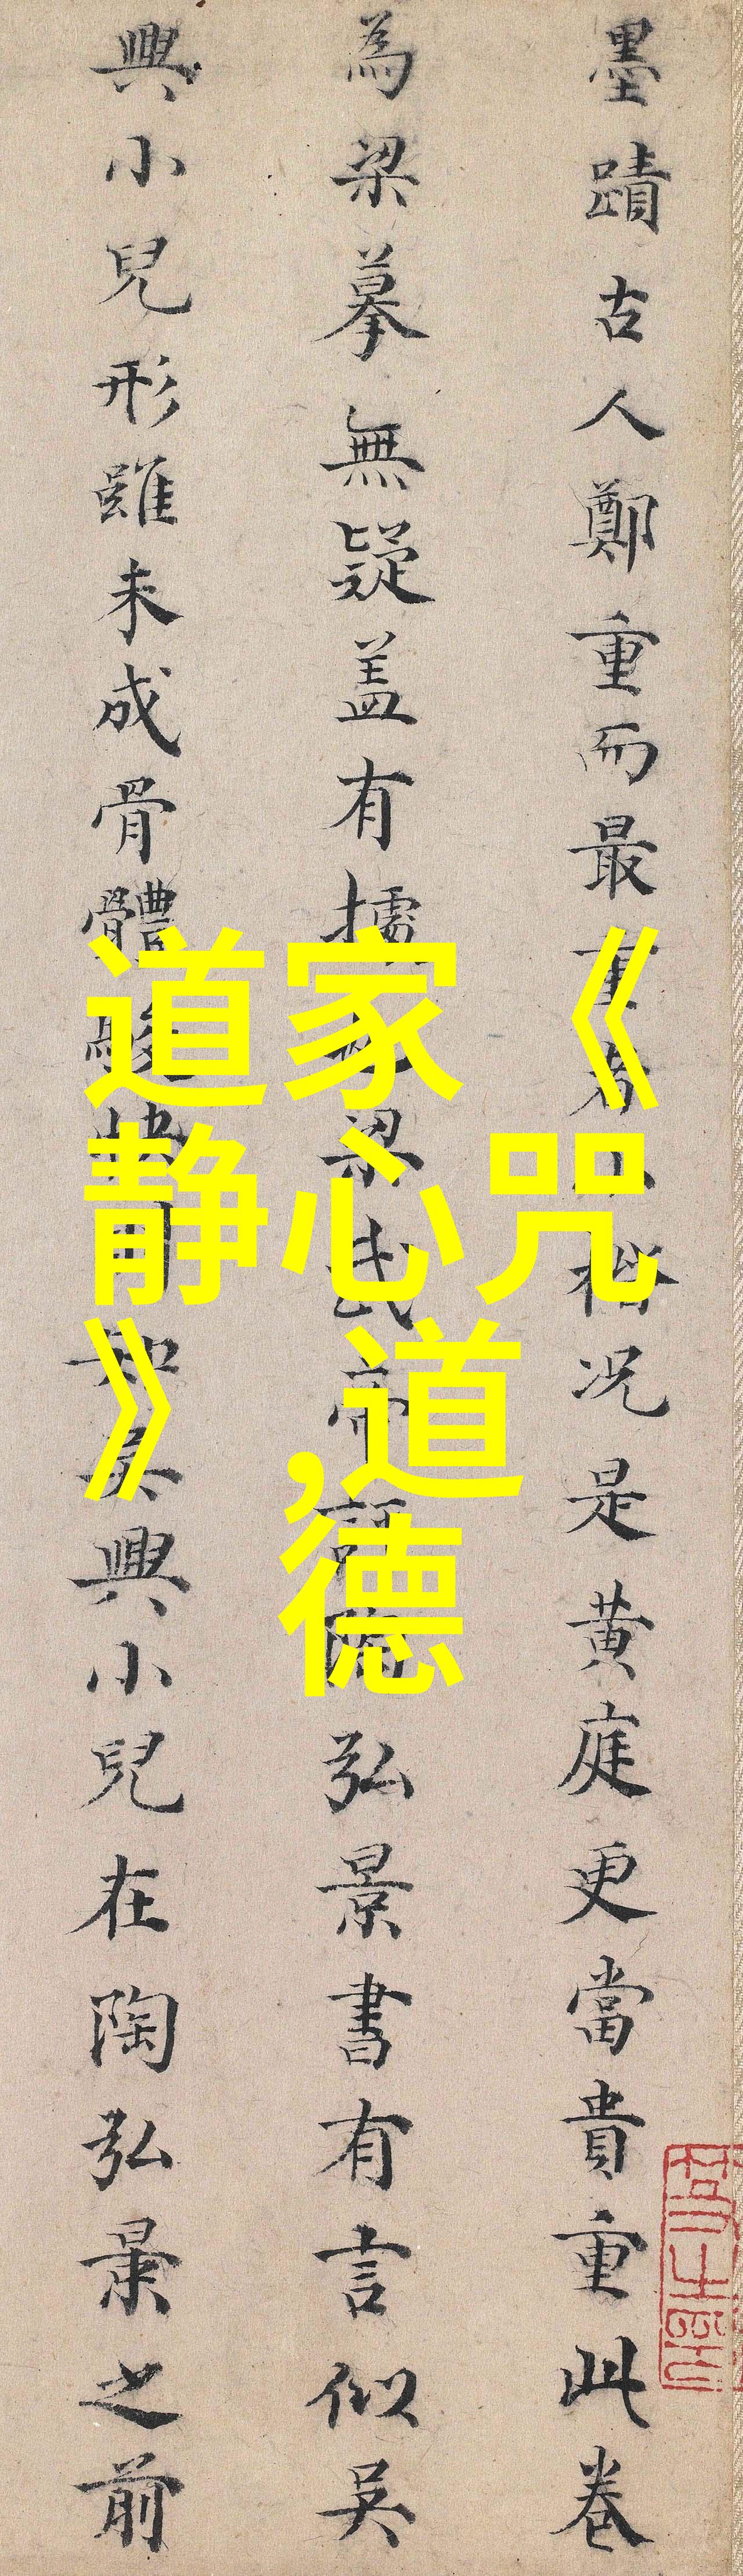 墨蹟古人鄭重而最重者小楷況是黃庭更當貴重此卷
為梁摹無疑蓋有據 梁武帝 陶弘景書有言似吳
興小兒形雖未成骨體 駿快 知吳興小兒在陶弘景之前
道家《
静心咒
》,道
德